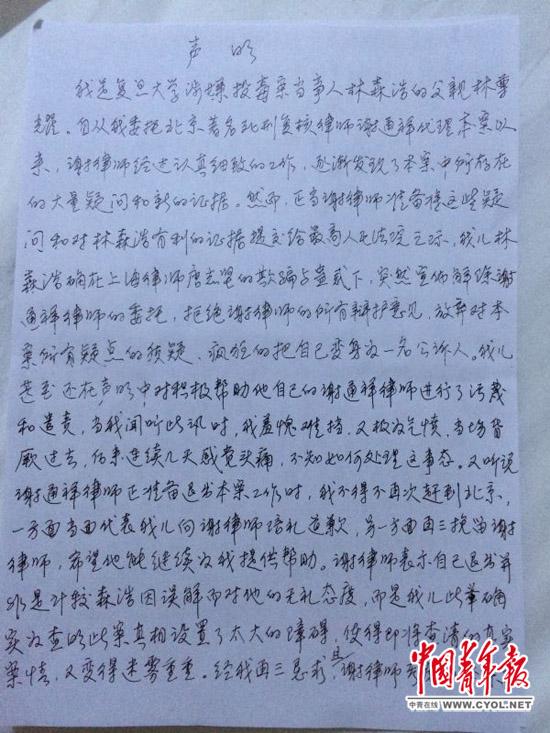 声 明
我是复旦大学涉嫌投毒案当事人林森浩的父亲林尊
耀。自从我委托北京著名死刑复核律师谢通祥代理本案以
来，谢律师经过认真细致的工作，逐渐发现了本案中所存在
的大量疑问和新的证据。然而，正当谢律师准备将这些疑
问和对林森浩有利的证据提交给最高人民法院之际，我儿林
森浩确在上海律师唐志坚的欺骗与蛊惑下，突然宣布解除谢
通祥律师的委托，拒绝谢律师的所有辩护意见，放弃对本
案所有疑点的质疑、疯狂的把自己变身为一名公诉人。我儿
甚至还在声明中对积极帮助他自己的谢通祥律师进行了污蔑
和谴责，当我闻听此讯时，我羞愧难挡，又极为气愤，当场昏
厥过去，后来连续几天感觉头痛，不知如何处理这事态。又听说
谢通祥律师正准备退出本案工作时，我不得不再次赶到北京，
一方面当面代表我儿向谢律师赔礼道歉，另一方面再三挽留谢
律师，希望他能继续为我提供帮助。谢律师表示自己退出并
非是计较森浩因误解而对他的无礼态度，而是我儿此举确
实为查明此案真相设置了太大的障碍，使得即将查清的真实
案情，又变得迷雾重重。经我再三恳求，且谢律师
中国青年报
中青在线 WWW.CYOL.NET